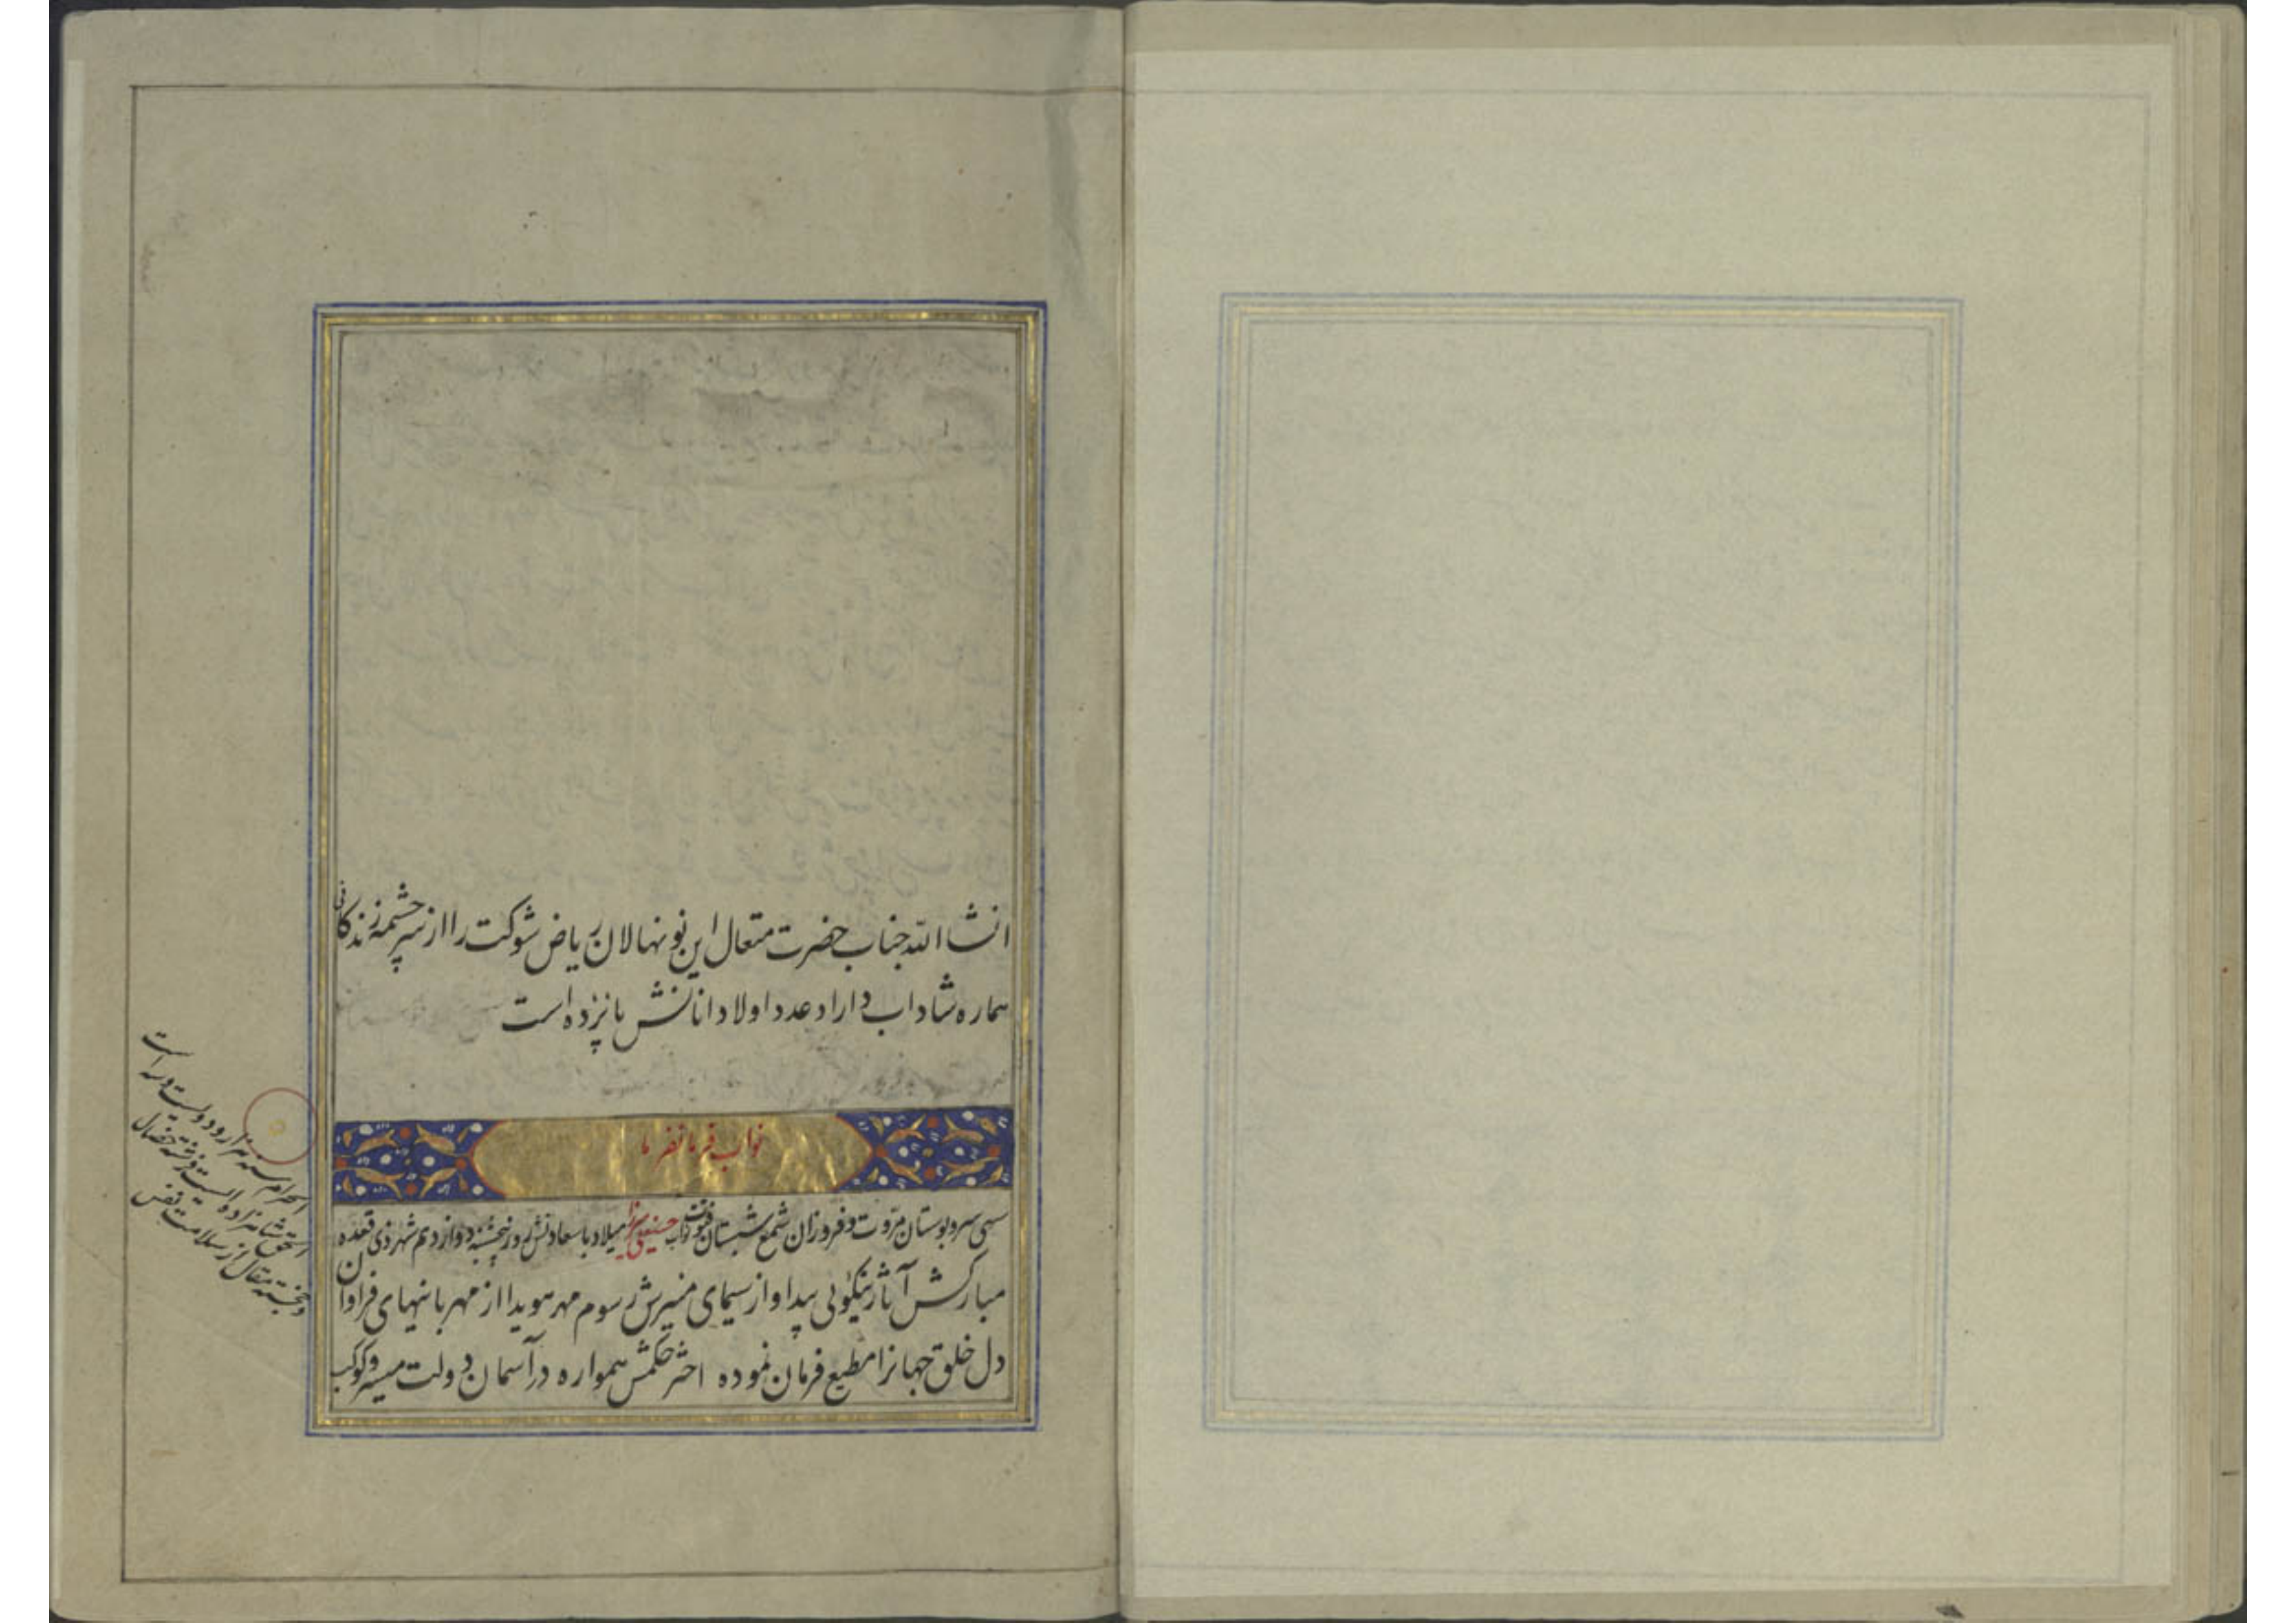 انشاالله جناب حضرت متعال این نونهالان ریاض شوکت را از سرچشمه زندکانی
هماره شاداب دارا د عدد اولاد اناثش پانزده است
نواب فرمانفرما
سهی سرو بوستان مروت و فروزان شمع شبستان فتوت نواب حسینعلی میرزا میلاد با سعادتش روز پنجشنبه دوازدهم شهر ذی قعده
الحرام سنه هزار و دویست و سه است
الحق شاهزاده ایست فرشته خصال
و خجسته مقال از سلامت نفس
مبارکش آثار نیکوئی پیدا و از سیمای منیرش رسوم مهر هویدا از مهربانیهای فراوان
دل خلق جهانرا مطیع فرمان نموده اختر حکمش همواره در آسمان دولت میسر و کوکب